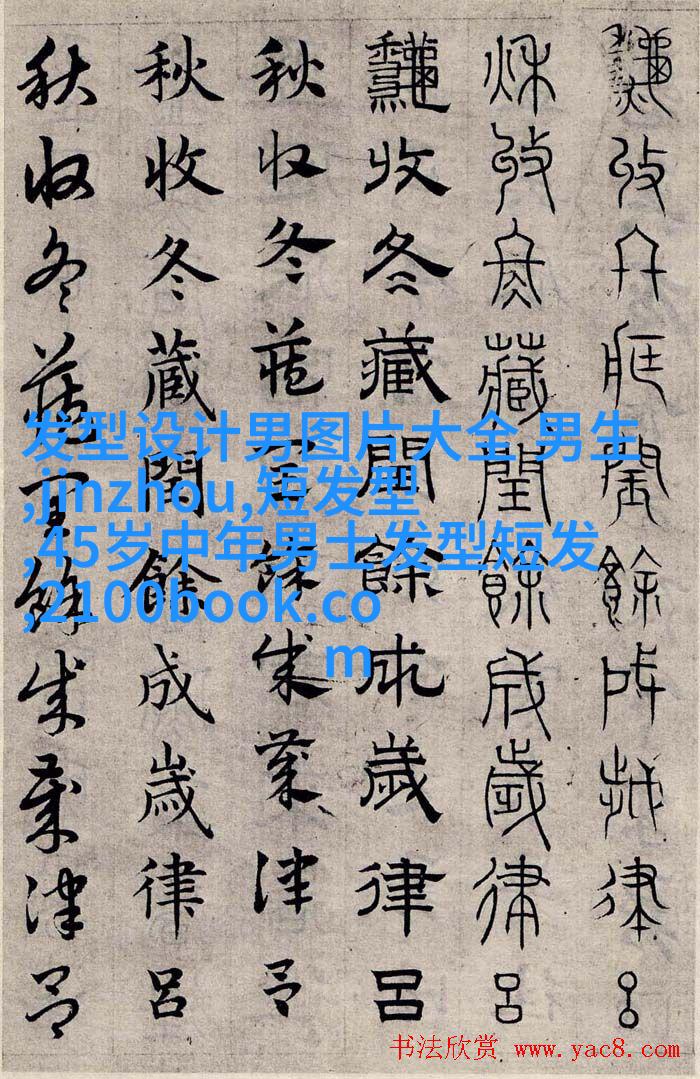 秋收冬藏閏餘成歲律呂
秋收冬藏閏餘成歲律呂
秋收冬藏閏餘成歲律呂
秋收冬藏閏餘成歲律呂
秋收冬藏閏餘成歲律呂
秋收冬藏閏餘成歲律呂
发型设计男图片大全,男生
,jinzhou,短发型
,45岁中年男士发型短发
,2100book.co
m
书法欣赏 www.yac8.com